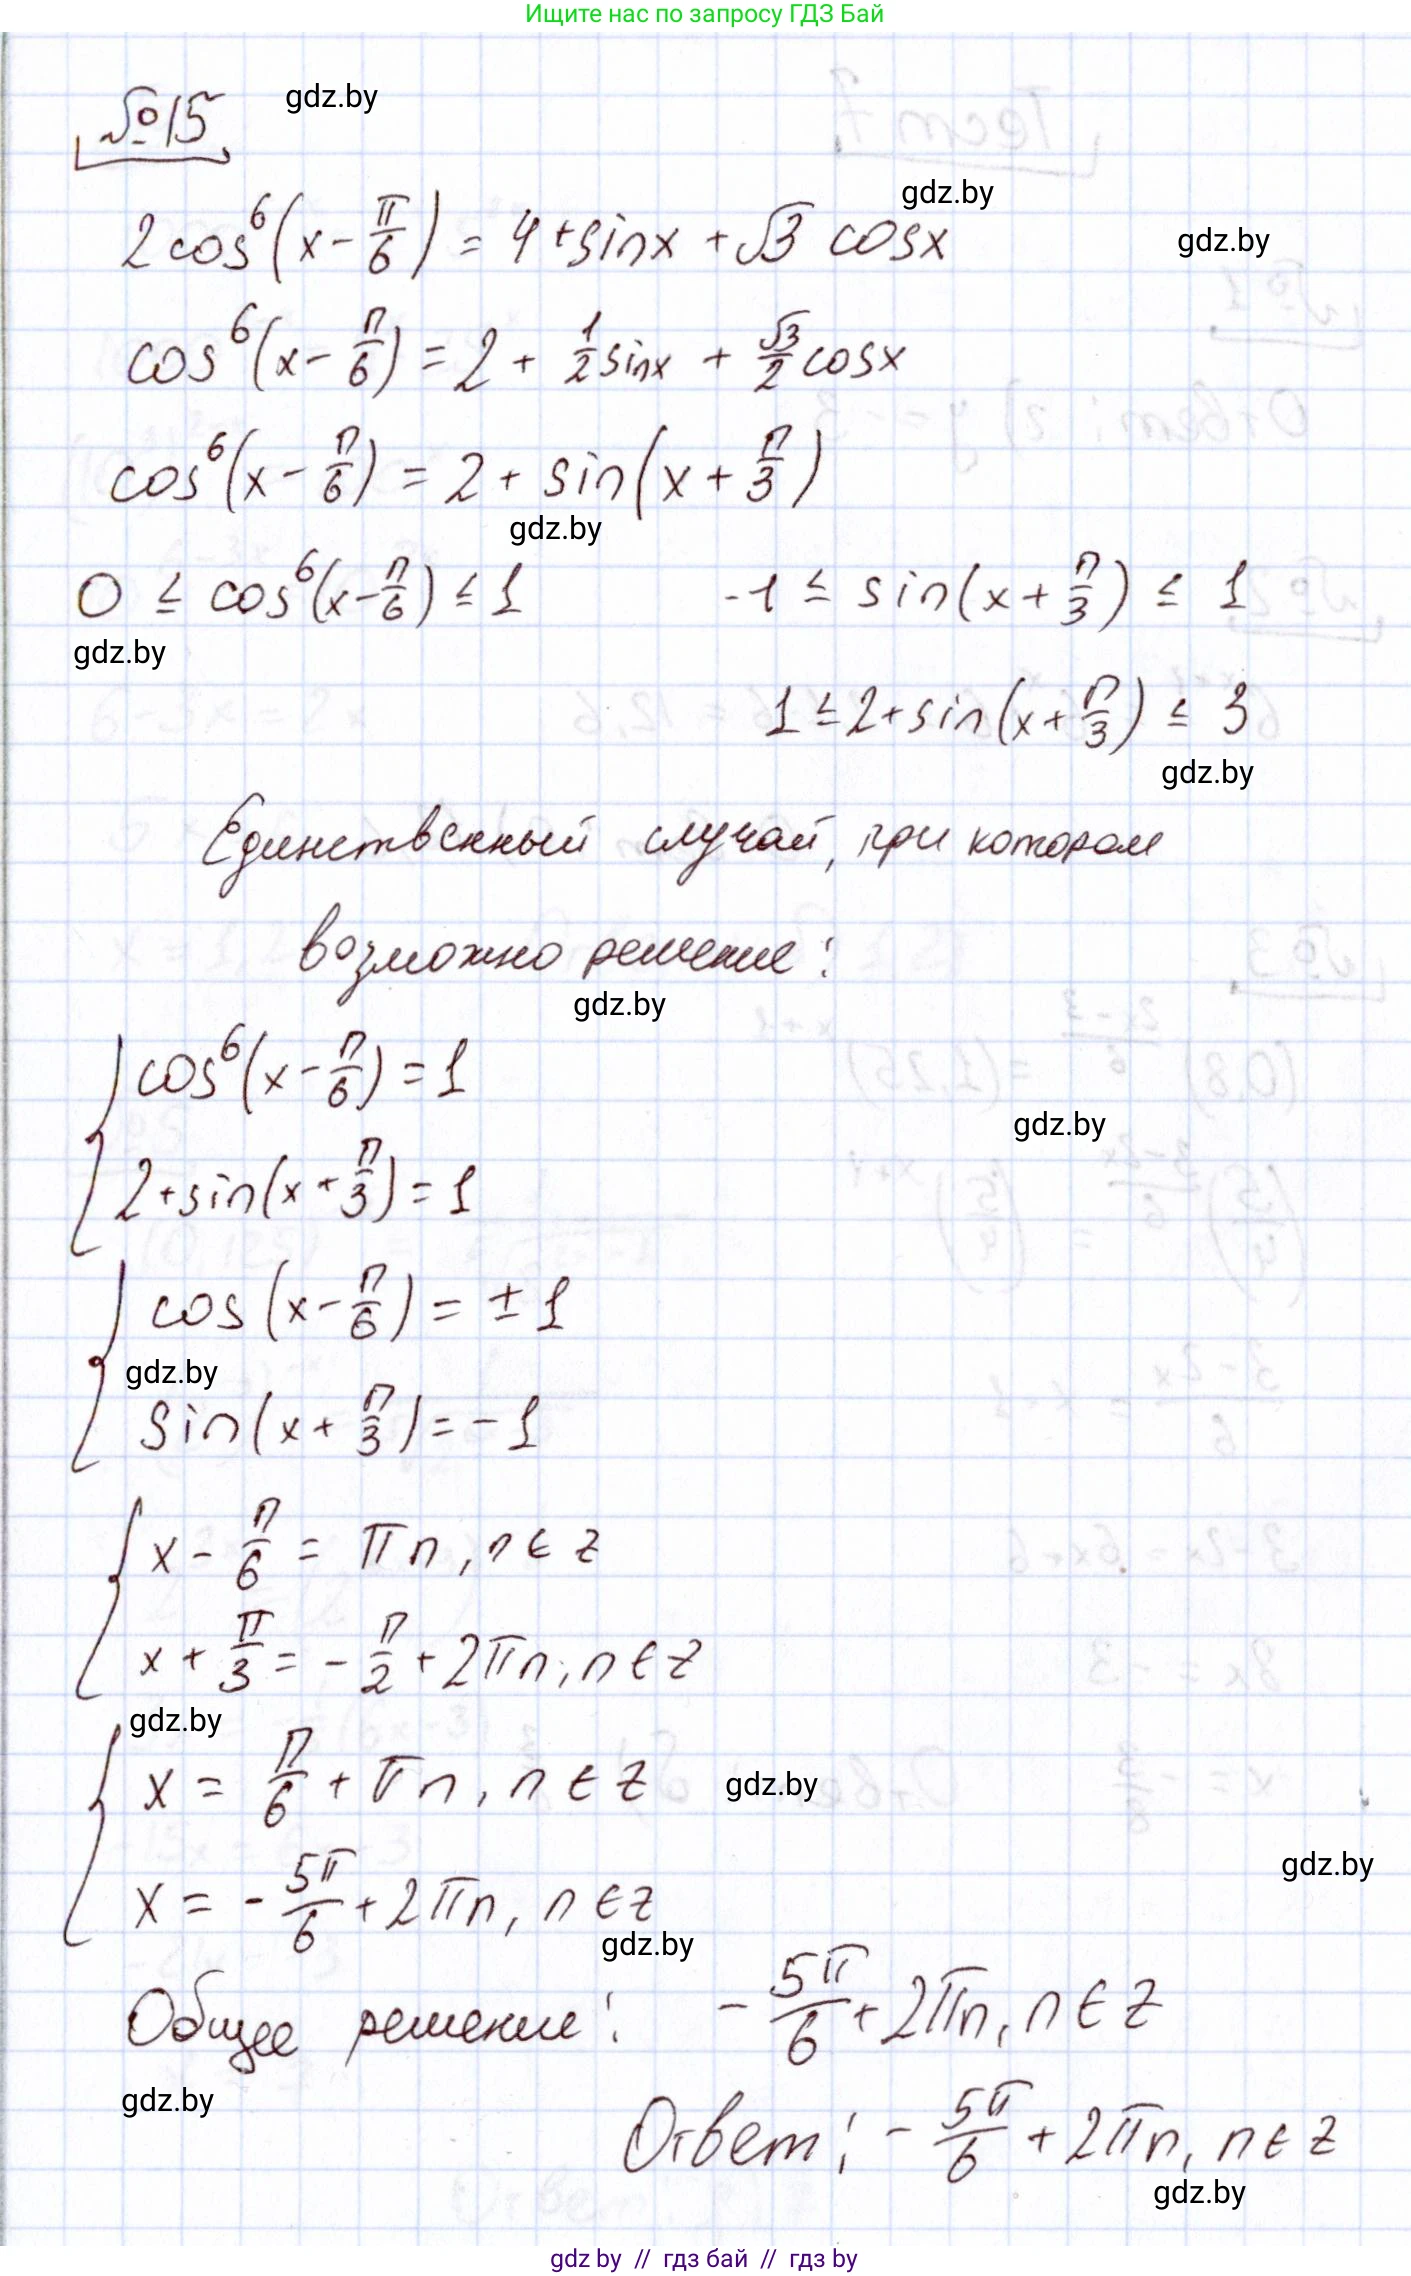 Ищите нас по запросу ГДЗ Бай
№15
gdz.by
gdz.by
2cos⁶(x - π/6) = 4 + sinx + √3 cosx
gdz.by
cos⁶(x - π/6) = 2 + 1/2 sinx + √3/2 cosx
cos⁶(x - π/6) = 2 + sin(x + π/3)
gdz.by
0 ≤ cos⁶(x - π/6) ≤ 1 -1 ≤ sin(x + π/3) ≤ 1
gdz.by
1 ≤ 2 + sin(x + π/3) ≤ 3
gdz.by
Единственный случай, при котором
возможно решение:
gdz.by
cos⁶(x - π/6) = 1
gdz.by
2 + sin(x + π/3) = 1
cos(x - π/6) = ±1
gdz.by
sin(x + π/3) = -1
x - π/6 = πn, n ∈ z
x + π/3 = -π/2 + 2πn, n ∈ z
gdz.by
x = π/6 + πn, n ∈ z
gdz.by
gdz.by
x = -5π/6 + 2πn, n ∈ z
gdz.by
Общее решение: -5π/6 + 2πn, n ∈ z
gdz.by
Ответ: -5π/6 + 2πn, n ∈ z
gdz.by
gdz by // гдз бай // гдз by